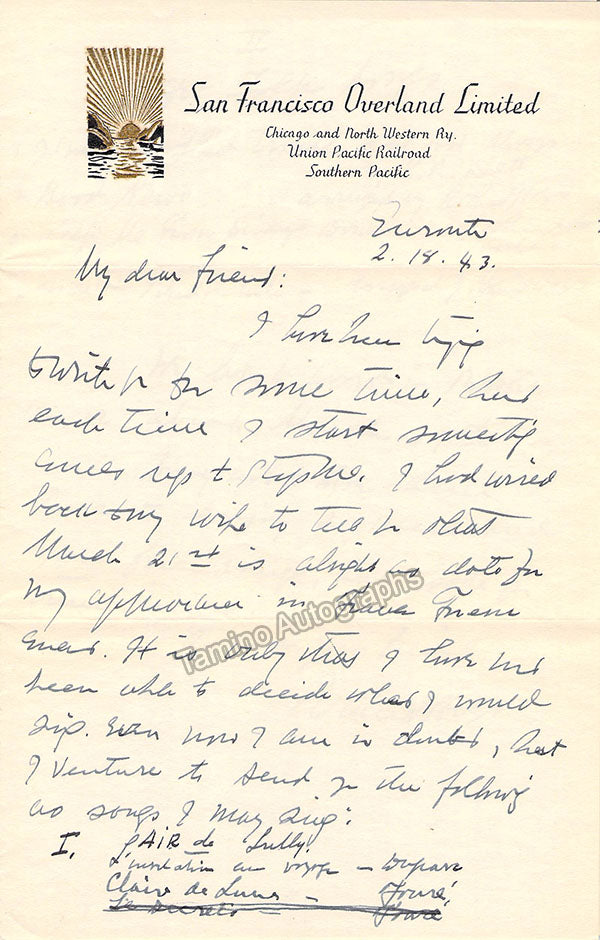 San Francisco Overland Limited
Chicago and North Western Ry.
Union Pacific Railroad
Southern Pacific
Enroute
2. 18. 43.
My dear Friend:
I have been trying
to write for some time, but
each time I start something
comes up to stop me. I had wired
back to my wife to tell that
March 21st is alright as date for
my appearance in France
It is only that I have not
been able to decide what I would
sing. Even now I am in doubt, but
I venture to send you the following
as songs I may sing:
I. AIR de Lully.
L'invitation au voyage – Duparc
Claire de Lune – Fauré
Le Secret – Fauré
Tamino Autographs